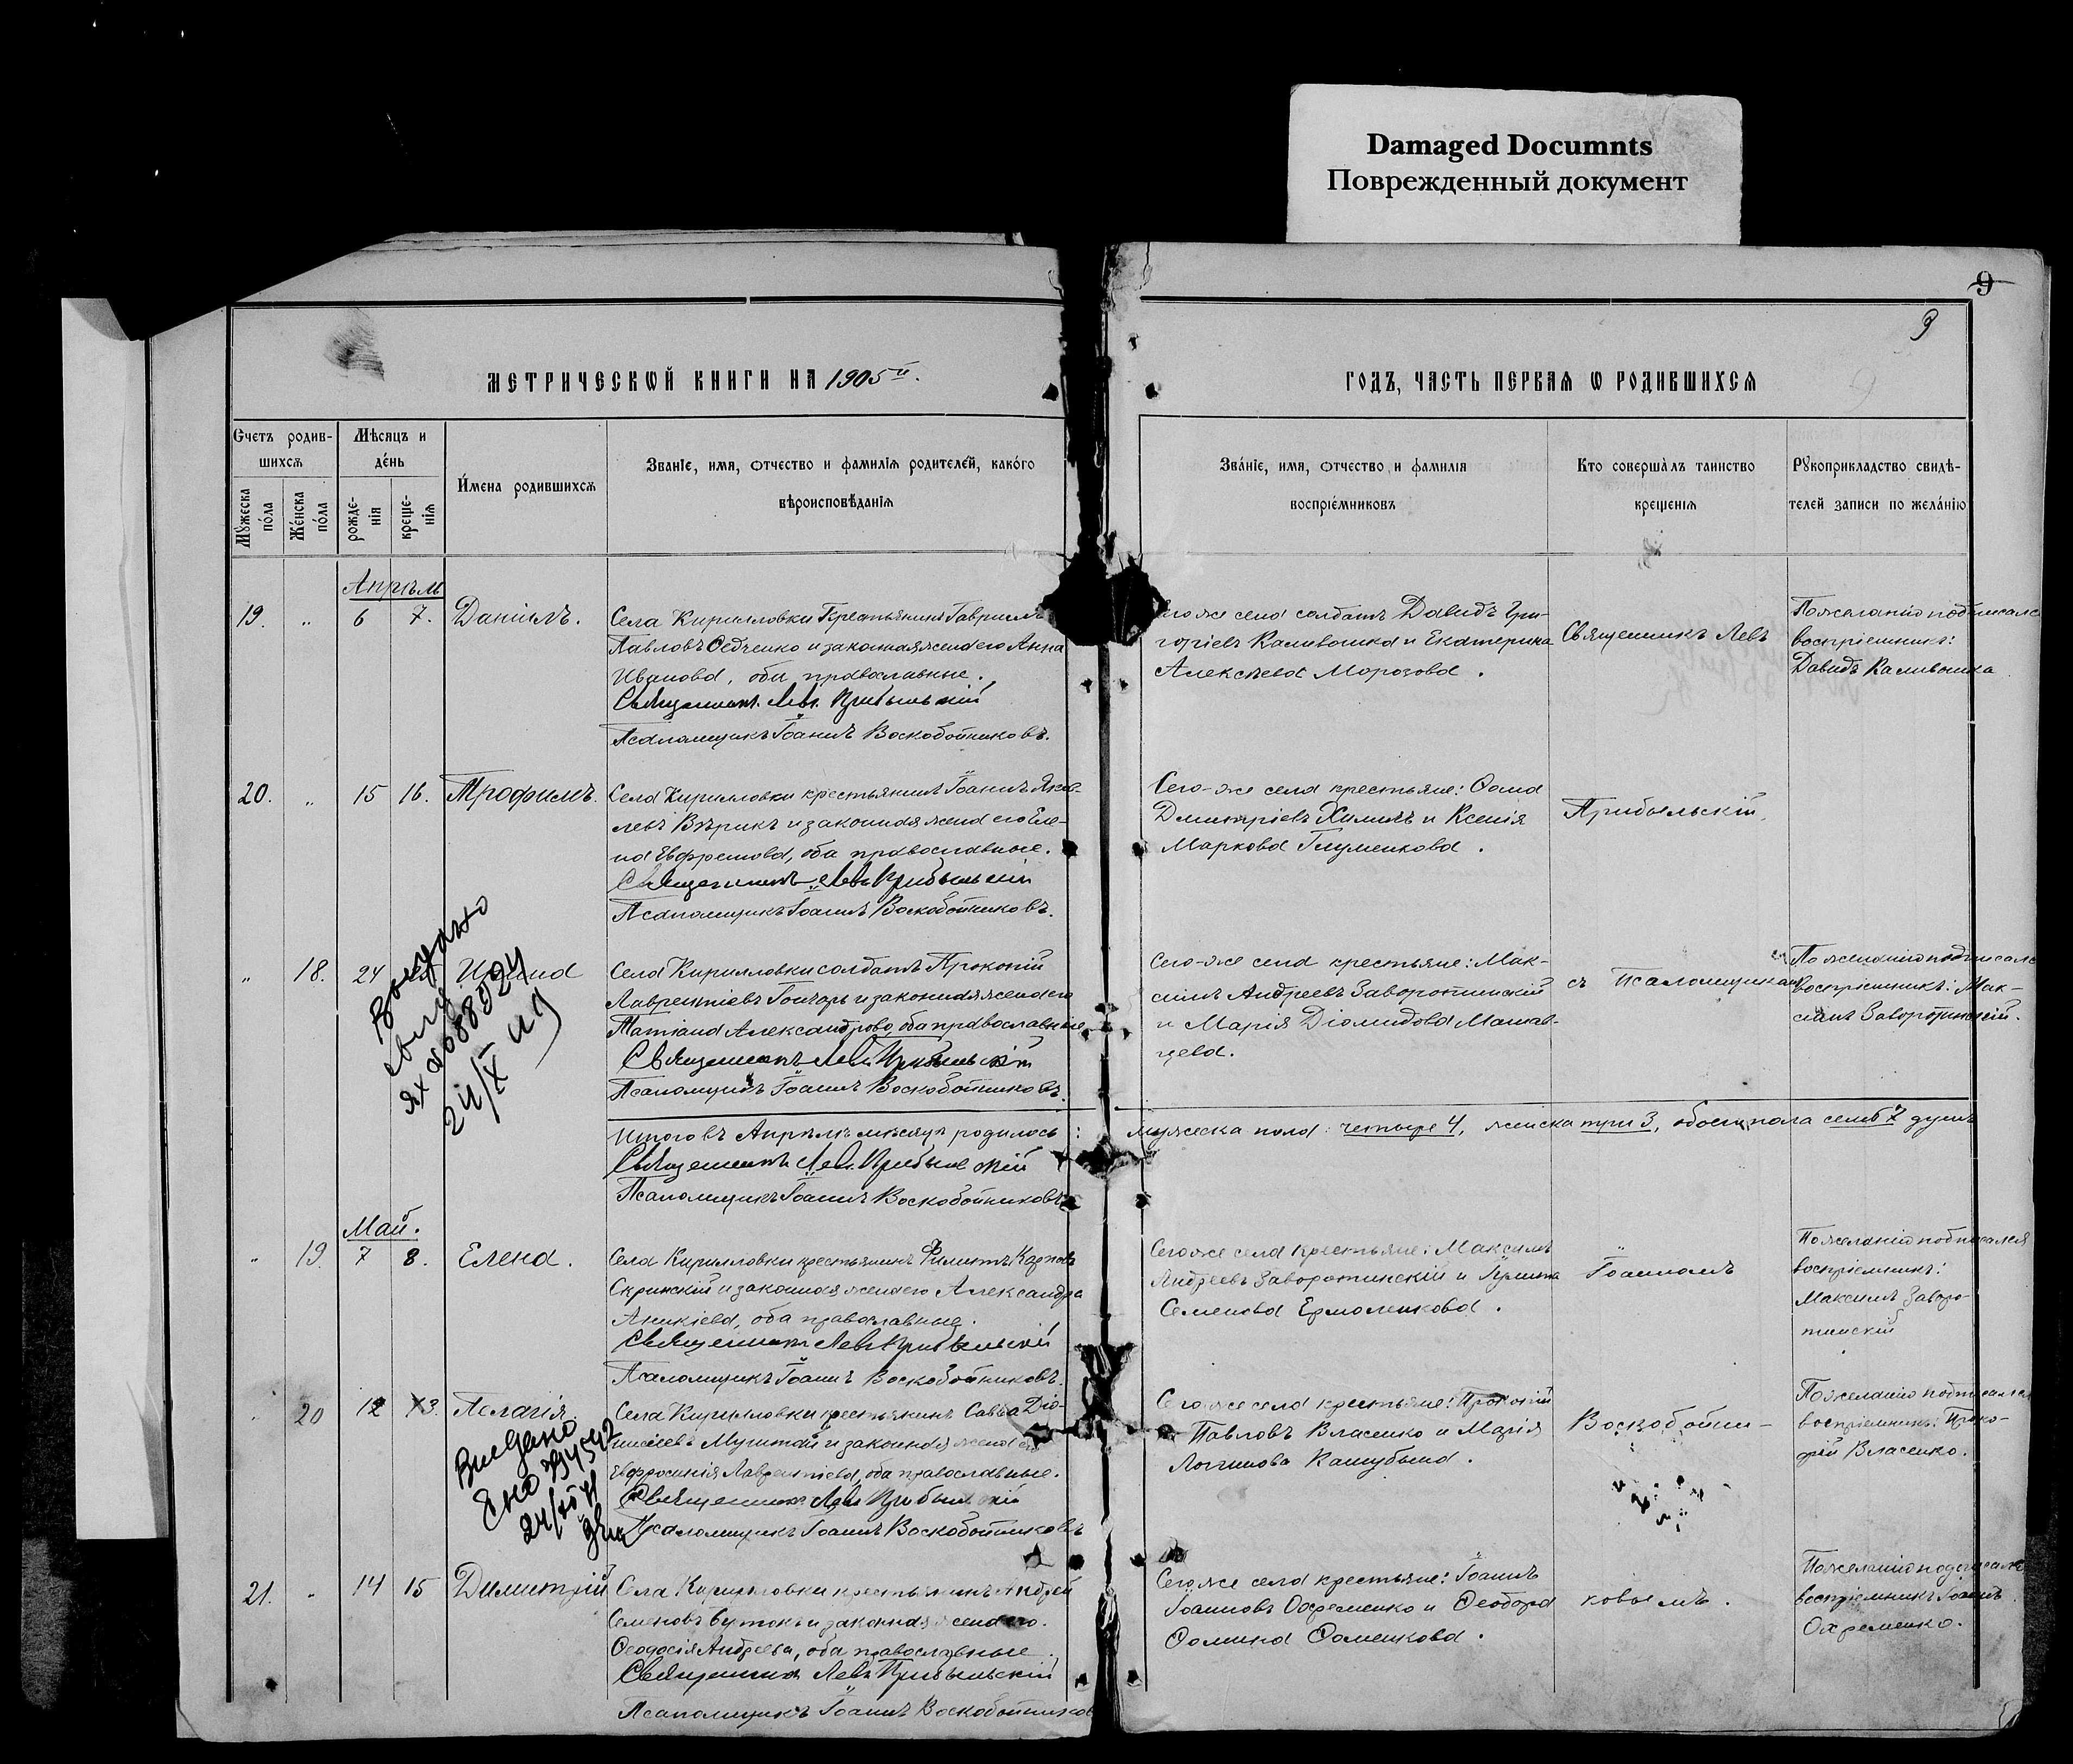 Damaged Documnts
Поврежденный документ
9
9
МЕТРИЧЕСКѠЙ КНИГИ НА 1905й.
ГОДЪ, ЧАСТЬ ПЕРВАЯ Ѡ РОДИВШИХСЯ
Счетъ родив-
шихся
Мужеска
пола
Женска
пола
Мѣсяцъ и
день
рожде-
нія
креще-
нія
Имена родившихся
Званіе, имя, отчество и фамилія родителей, какого
вѣроисповѣданія
Званіе, имя, отчество и фамилія
воспріемниковъ
Кто совершалъ таинство
крещенія
Рукоприкладство свидѣ-
телей записи по желанію
Апрѣль
19. " 6 7. Даніилъ.
Села Кирилловки Крестьянинъ Гавриилъ
Павловъ Федченко и законная жена его Анна
Иванова, оба православные.
Священникъ Левъ Прибыльскій
Псаломщикъ Іоаннъ Воскобойниковъ.
Сего же села солдатъ Давидъ Гри-
горіевъ Каливошка и Екатерина
Алексѣева Морозова.
Священникъ Левъ
По желанію подписался
воспріемникъ:
Давидъ Каливошка
20. " 15 16. Трофимъ.
Села Кирилловки крестьянинъ Іоаннъ Яков-
левъ Вѣрикъ и законная жена его Еле-
на Евфремова, оба православные.
Священникъ Левъ Прибыльскій
Псаломщикъ Іоаннъ Воскобойниковъ.
Сего-же села крестьяне: Ѳома
Дмитріевъ Химичъ и Ксенія
Маркова Глуменкова.
Прибыльскій
" 18. 24
Села Кирилловки солдатъ Прокопій
Лаврентіевъ Гончаръ и законная жена его
Татіана Александрова, оба православные
Священникъ Левъ Прибыльскій
Псаломщикъ Іоаннъ Воскобойниковъ.
Сего-же села крестьяне: Мак-
симъ Андреевъ Заворотинскій
и Марія Діомидова
съ Псаломщикомъ
По желанію подписался
воспріемникъ: Мак-
симъ Заворотинскій.
24/X
Итого въ Апрѣлѣ мѣсяцѣ родилось:
мужеска пола: четыре 4, женска три 3, обоего пола семь 7 душъ
Священникъ Левъ Прибыльскій
Псаломщикъ Іоаннъ Воскобойниковъ
Май.
" 19. 7 8. Елена.
Села Кирилловки крестьянинъ Филиппъ Карповъ
Скринскій и законная жена его Александра
Аникіева, оба православные.
Священникъ Левъ Прибыльскій
Псаломщикъ Іоаннъ Воскобойниковъ.
Сего же села крестьяне: Максимъ
Андреевъ Заворотинскій и
Семенова Ермоленкова.
Іоанномъ
По желанію подписался
воспріемникъ:
Максимъ Заворо-
тинскій
" 20 12 13. Пелагія.
Села Кирилловки крестьянинъ Савва Діо-
нисіевъ и законная жена его
Евфросинія Лаврентіева, оба православные.
Священникъ Левъ Прибыльскій
Псаломщикъ Іоаннъ Воскобойниковъ
Сего же села крестьяне: Прокопій
Павловъ Власенко и Марія
Логгинова
Воскобойни-
По желанію подписался
воспріемникъ: Проко-
пій Власенко.
Видано
21. " 14 15 Димитрій
Села Кирилловки крестьянинъ Андрей
Семеновъ Бутокъ и законная жена его
Ѳеодосія Андреева, оба православные.
Священникъ Левъ Прибыльскій
Псаломщикъ Іоаннъ Воскобойниковъ
Сего же села крестьяне: Іоаннъ
Іоанновъ Охременко и Ѳеодора
Ѳомина Ѳоменкова.
ковымъ.
По желанію подписался
воспріемникъ Іоаннъ
Охременко.